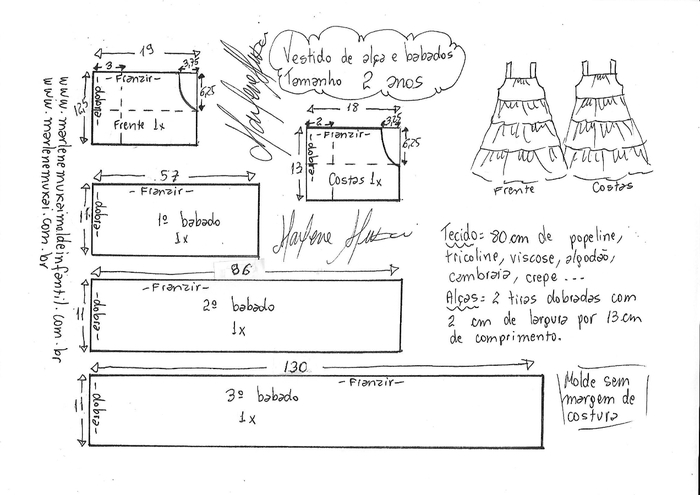 Vestido de alça e babados
Tamanho 2 anos
19
3
3,75
Franzir
6,25
12,5
dobra
Frente 1x
18
2
3,75
Franzir
6,25
13
dobra
Costas 1x
Frente
Costas
57
Franzir
11
dobra
1º babado
1x
Marlene Mukai
Marlene Mukai
86
Franzir
11
dobra
2º babado
1x
130
Franzir
11
dobra
3º babado
1x
Tecido = 80 cm de popeline,
tricoline, viscose, algodão,
cambraia, crepe ...
Alças = 2 tiras dobradas com
2 cm de largura por 13 cm
de comprimento.
Molde sem
margem de
costura
www.marlenemukaimoldeinfantil.com.br
www.marlenemukai.com.br